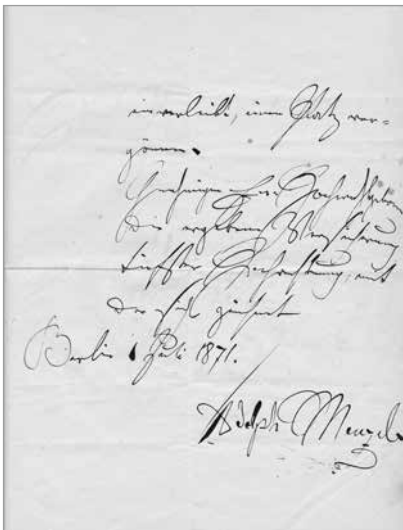 einverleibt, einen Platz ver-
gönnen.
Genehmigen Eure Hochwohlgeboren
die ergebene Versicherung
tiefster Hochachtung, mit
der sich zeichnet
Berlin 1 Juli 1871.
Adolph Menzel